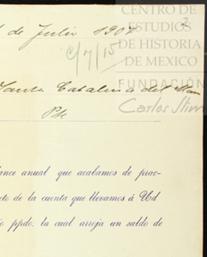 CENTRO DE
ESTUDIOS
DE HISTORIA
DE MEXICO
FUNDACIÓN
Carlos Slim
2
de Julio 1907
C/7/15
Santa Catalina del
Pte
lance anual que acabamos de prac-
to de la cuenta que llevamos á Ud
o ppdo. la cual arroja un saldo de